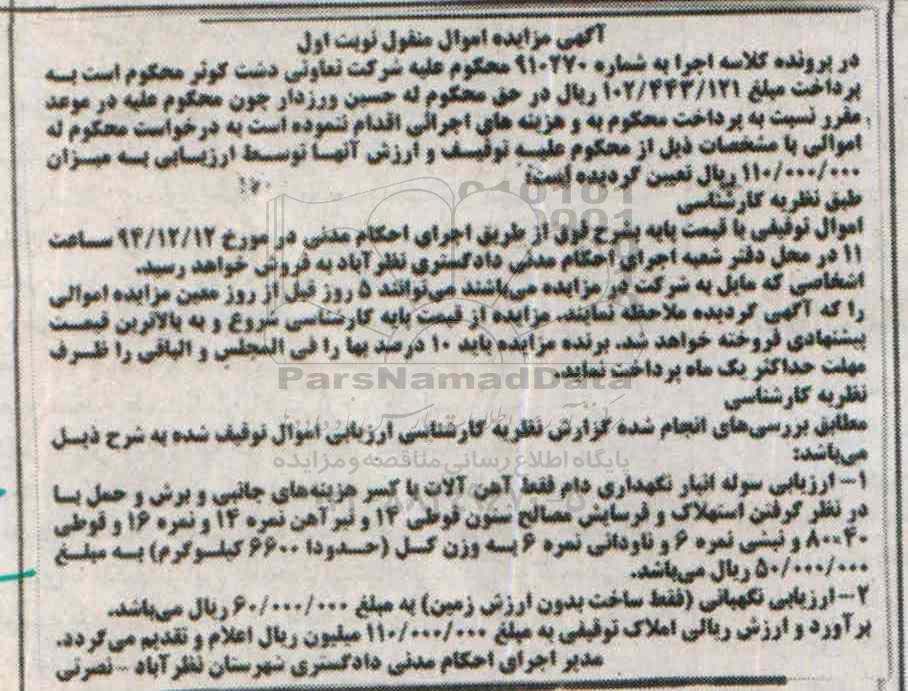 آگهی مزایده اموال منقول نوبت اول
در پرونده کلاسه اجرا به شماره ۹۱۰۲۷۰ محکوم علیه شرکت تعاونی دشت کوثر محکوم است به
پرداخت مبلغ ۱۰۲/۴۴۳/۱۲۱ ریال در حق محکوم له حسین ورزدار چون محکوم علیه در موعد
مقرر نسبت به پرداخت محکوم به و هزینه های اجرائی اقدام ننموده است به درخواست محکوم له
اموالی با مشخصات ذیل از محکوم علیه توقیف و ارزش آنها توسط ارزیابی به میزان
۱۱۰/۰۰۰/۰۰۰ ریال تعیین گردیده است:
طبق نظریه کارشناسی
اموال توقیفی با قیمت پایه بشرح فوق از طریق اجرای احکام مدنی در مورخ ۹۴/۱۲/۱۲ ساعت
۱۱ در محل دفتر شعبه اجرای احکام مدنی دادگستری نظرآباد به فروش خواهد رسید.
اشخاصی که مایل به شرکت در مزایده می‌باشند می‌توانند ۵ روز قبل از روز معین مزایده اموالی
را که آگهی گردیده ملاحظه نمایند. مزایده از قیمت پایه کارشناسی شروع و به بالاترین قیمت
پیشنهادی فروخته خواهد شد. برنده مزایده باید ۱۰ درصد بها را فی المجلس و الباقی را ظرف
مهلت حداکثر یک ماه پرداخت نماید.
ParsNamadData
نظریه کارشناسی
مطابق بررسی‌های انجام شده گزارش نظریه کارشناسی ارزیابی اموال توقیف شده به شرح ذیل
می‌باشد:
پایگاه اطلاع رسانی مناقصه و مزایده
۱- ارزیابی سوله انبار نگهداری دام فقط آهن آلات با کسر هزینه‌های جانبی و برش و حمل با
در نظر گرفتن استهلاک و فرسایش مصالح ستون قوطی ۱۴ و تیرآهن نمره ۱۴ و نمره ۱۶ و قوطی
۴۰×۸۰ و نبشی نمره ۶ و ناودانی نمره ۶ به وزن کل (حدودا ۶۶۰۰ کیلوگرم) به مبلغ
۵۰/۰۰۰/۰۰۰ ریال می‌باشد.
۲- ارزیابی نگهبانی (فقط ساخت بدون ارزش زمین) به مبلغ ۶۰/۰۰۰/۰۰۰ ریال می‌باشد.
برآورد و ارزش ریالی املاک توقیفی به مبلغ ۱۱۰/۰۰۰/۰۰۰ میلیون ریال اعلام و تقدیم می‌گردد.
مدیر اجرای احکام مدنی دادگستری شهرستان نظرآباد - نصرتی